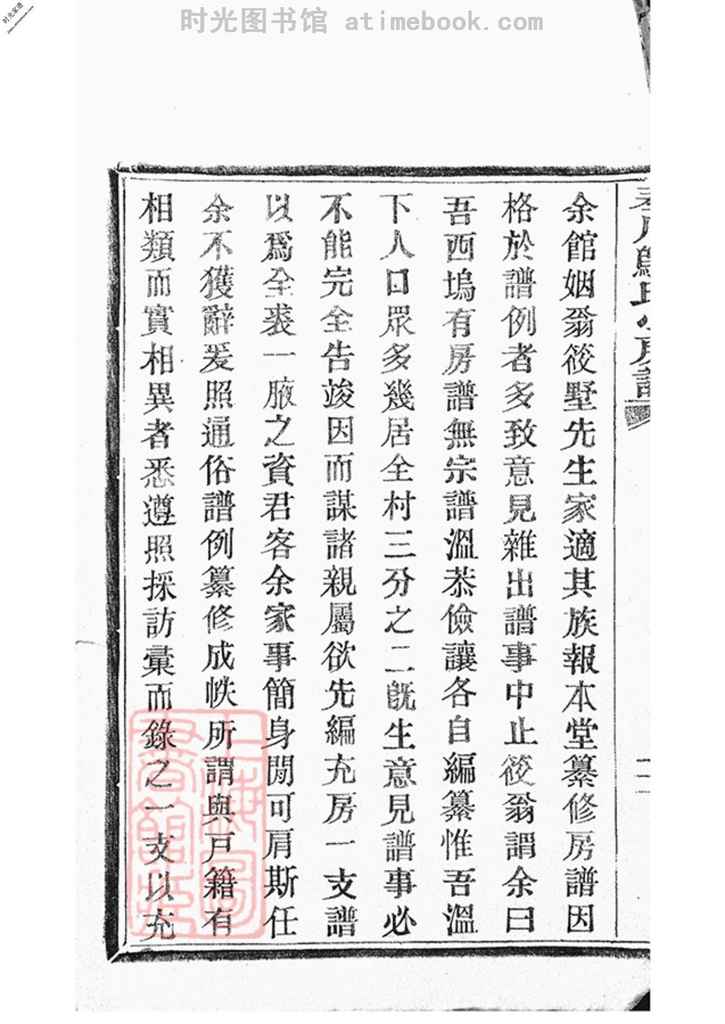 时光图书馆 atimebook.com
余館姻翁筱墅先生家適其族報本堂纂修房譜因
格於譜例者多致意見雜出譜事中止筱翁謂余曰
吾西塢有房譜無宗譜溫恭儉讓各自編纂惟吾溫
下人口眾多幾居全村三分之二旣生意見譜事必
不能完全告竣因而謀諸親屬欲先編充房一支譜
以爲全裘一腋之資君客余家事簡身閒可肩斯任
余不獲辭爰照通俗譜例纂修成帙所謂與戸籍有
相類而實相異者悉遵照採訪彙而錄之一支以充